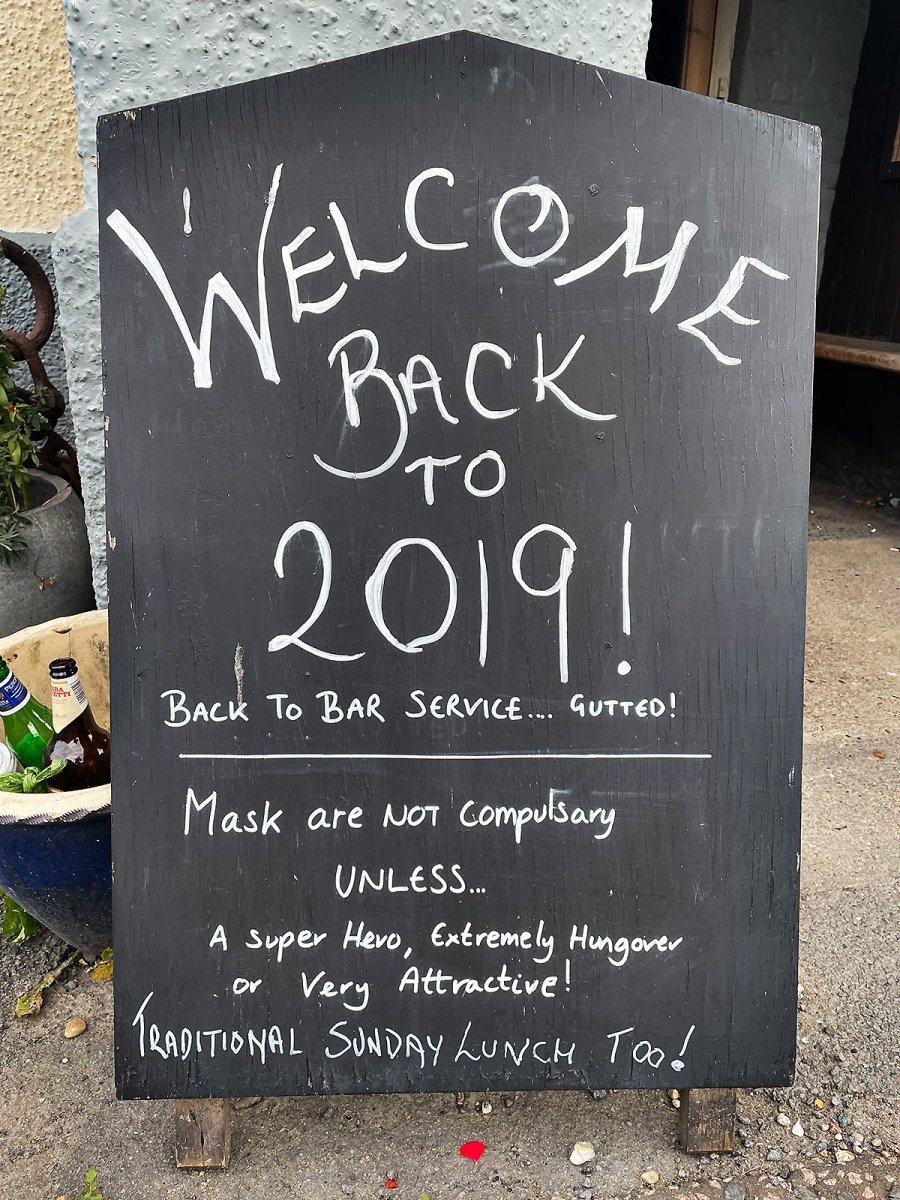 WELCOME
BACK
TO
2019!
BACK TO BAR SERVICE.... GUTTED!
Mask are NOT Compulsary
UNLESS...
A Super Hero, Extremely Hungover
or Very Attractive!
TRADITIONAL SUNDAY LUNCH TOO!